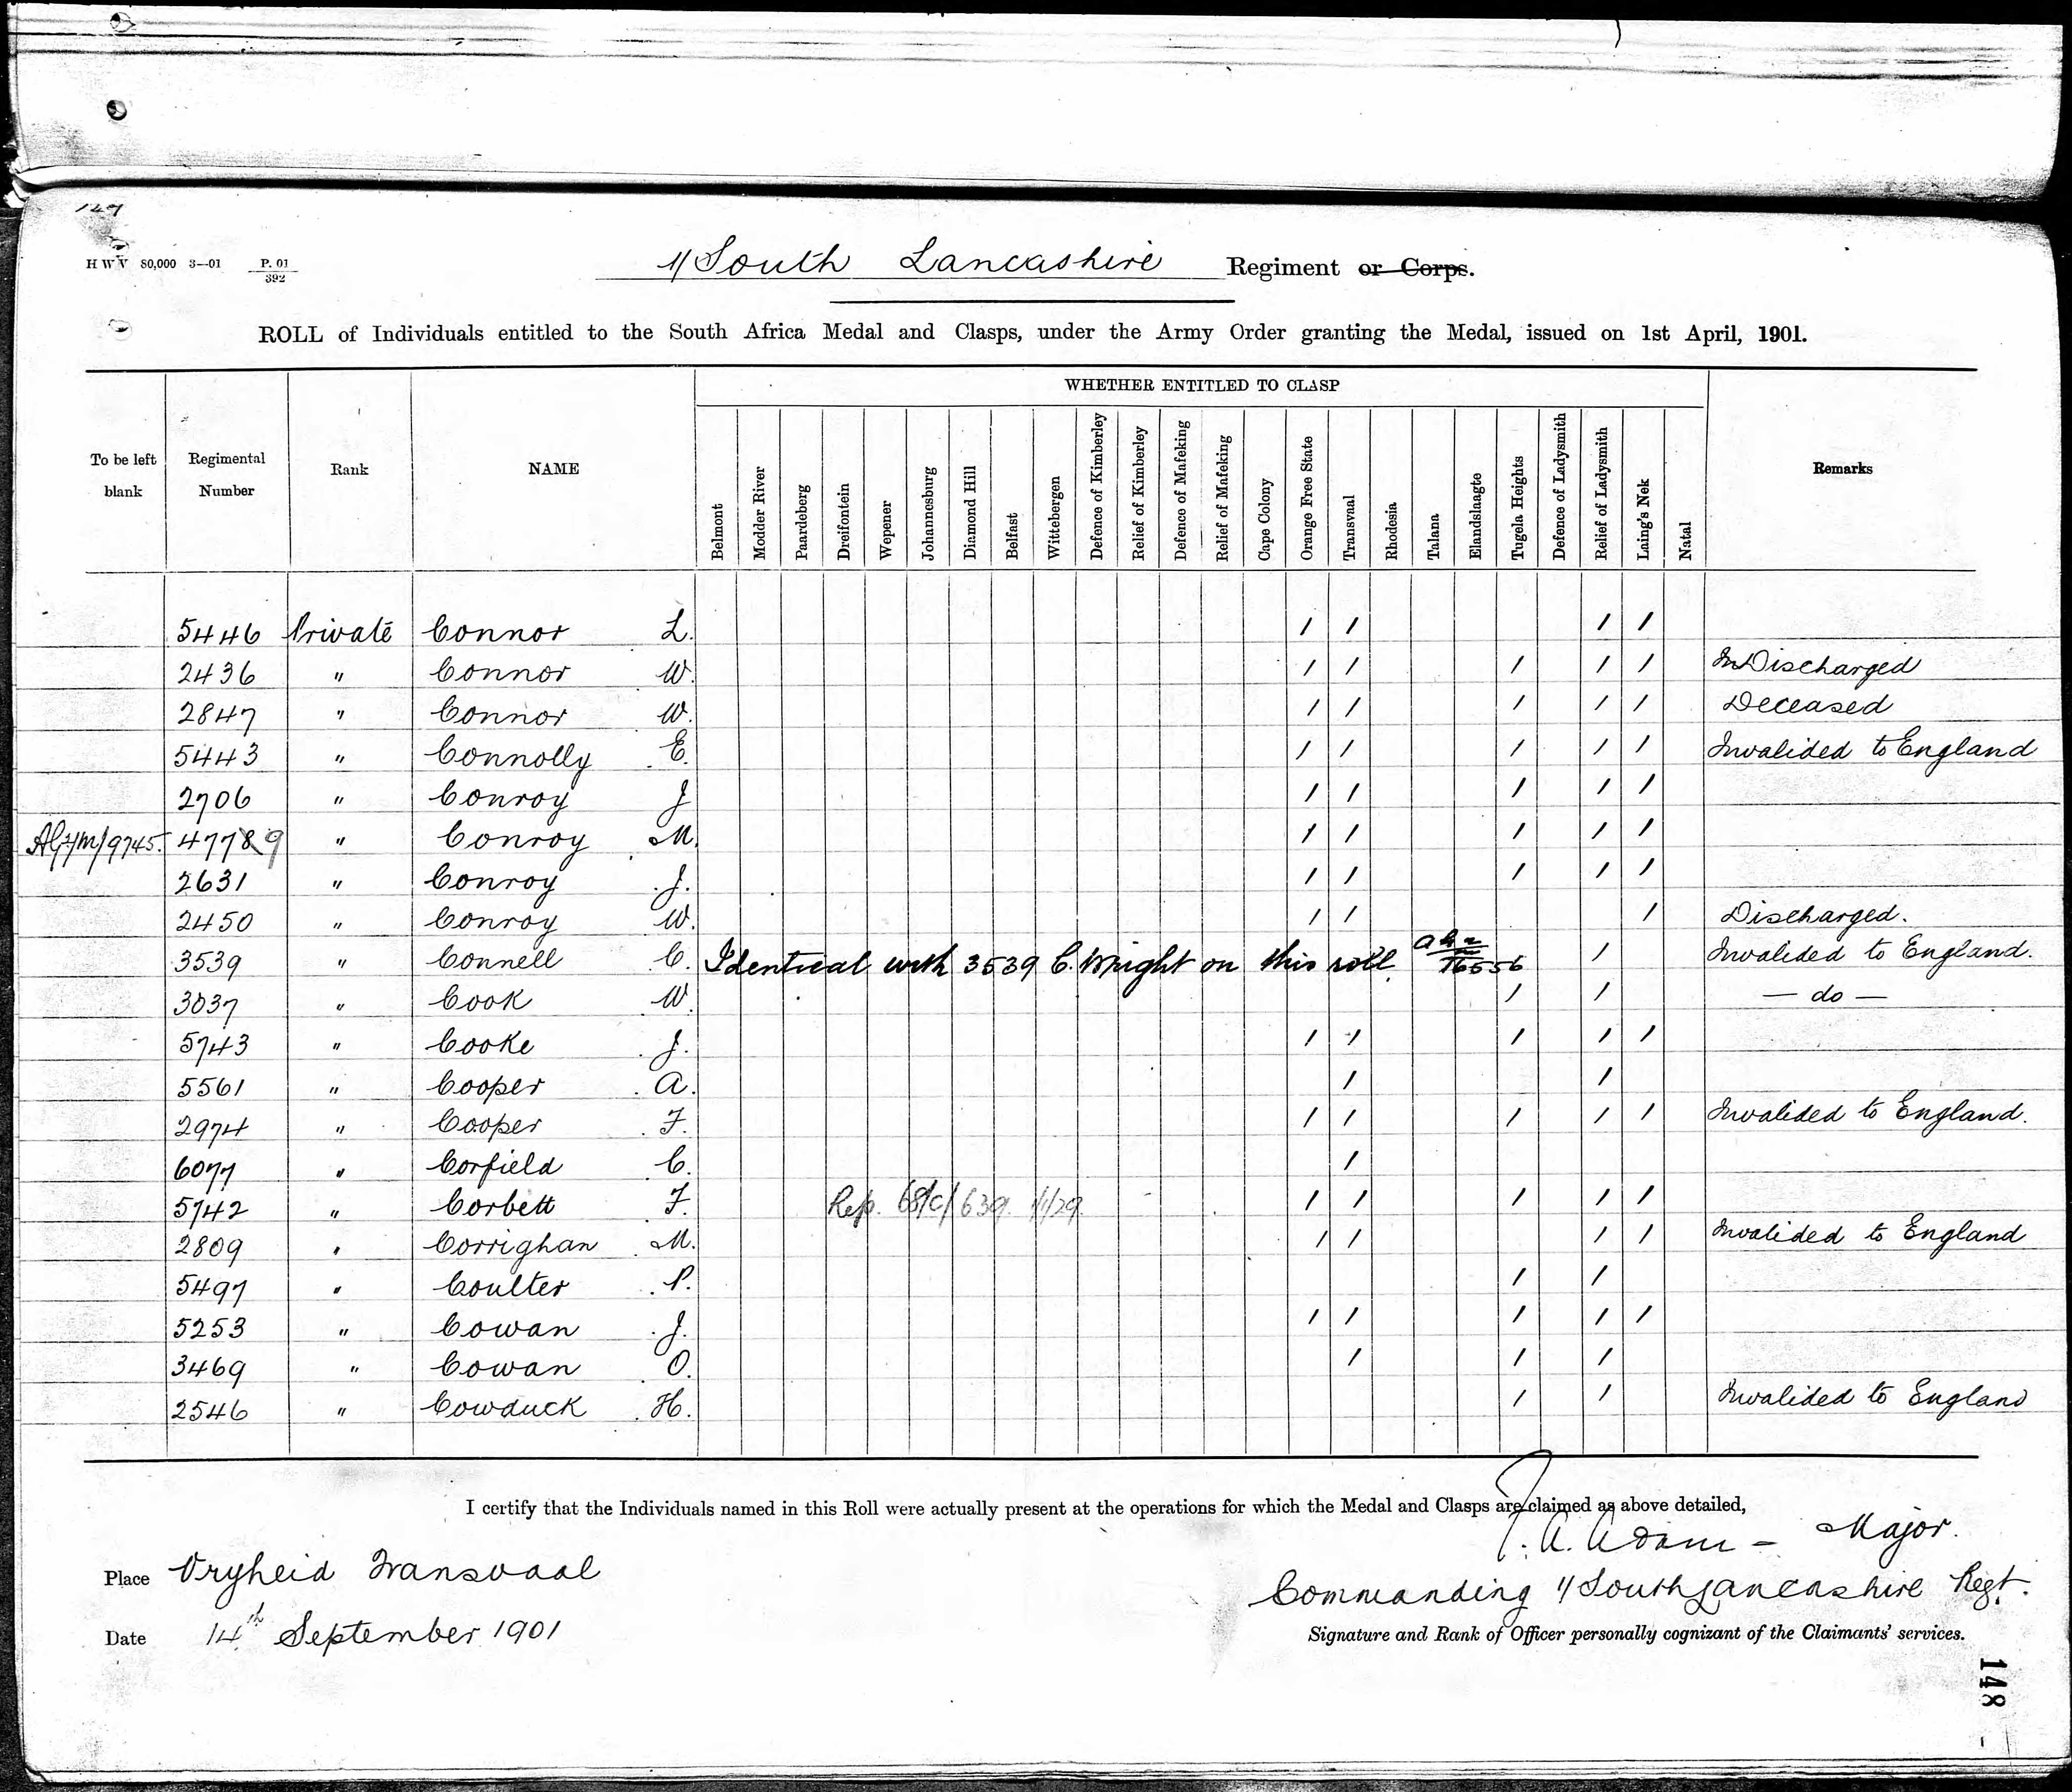 147
H W V 80,000 3—01 P. 01 / 392
1/ South Lancashire Regiment or Corps.
ROLL of Individuals entitled to the South Africa Medal and Clasps, under the Army Order granting the Medal, issued on 1st April, 1901.
WHETHER ENTITLED TO CLASP
To be left blank Regimental Number Rank NAME Belmont Modder River Paardeberg Dreifontein Wepener Johannesburg Diamond Hill Belfast Wittebergen Defence of Kimberley Relief of Kimberley Defence of Mafeking Relief of Mafeking Cape Colony Orange Free State Transvaal Rhodesia Talana Elandslaagte Tugela Heights Defence of Ladysmith Relief of Ladysmith Laing's Nek Natal Remarks
5446 Private Connor L. / / / /
2436 " Connor W. / / / / / Discharged
2847 " Connor W. / / / / / Deceased
5443 " Connolly E. / / / / / Invalided to England
2706 " Conroy J / / / / /
/9745. 47789 " Conroy M. / / / / /
2631 " Conroy J. / / / / /
2450 " Conroy W. / / / Discharged.
3539 " Connell C. Identical with 3539 C. Wright on this roll 16556 / Invalided to England.
3037 " Cook W. / / — do —
5743 " Cooke J. / / / / /
5561 " Cooper A. / /
2974 " Cooper F. / / / / / Invalided to England.
6077 " Corfield C. /
5742 " Corbett F. Rep. 68/C/639. 1/1/29. / / / / /
2809 " Corrighan M. / / / / Invalided to England
5497 " Coulter P. / /
5253 " Cowan J. / / / / /
3469 " Cowan O. / / /
2546 " Cowduck H. / / Invalided to England
I certify that the Individuals named in this Roll were actually present at the operations for which the Medal and Clasps are claimed as above detailed,
A. Adam - Major.
Place Vryheid Transvaal
Commanding 1/ South Lancashire Regt.
Date 14th September 1901
Signature and Rank of Officer personally cognizant of the Claimants' services.
148